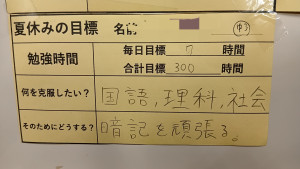 夏休みの目標 名前 中3
勉強時間 毎日目標 7 時間
合計目標 300 時間
何を克服したい? 国語,理科,社会
そのためにどうする? 暗記を頑張る。